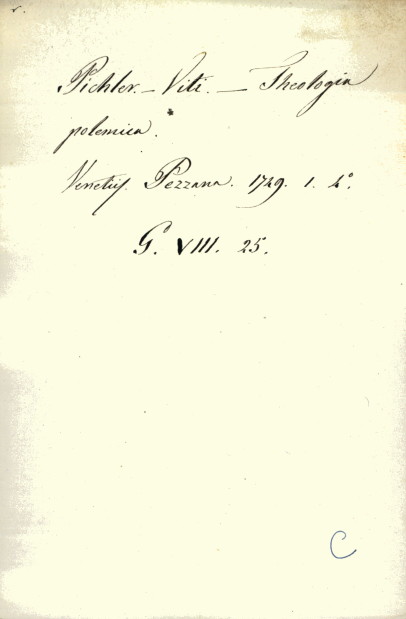 Pichler. – Viti. – Theologia
polemica.
Venetiis. Pezzana. 1749. 1. 4°.
G. VIII. 25.
C